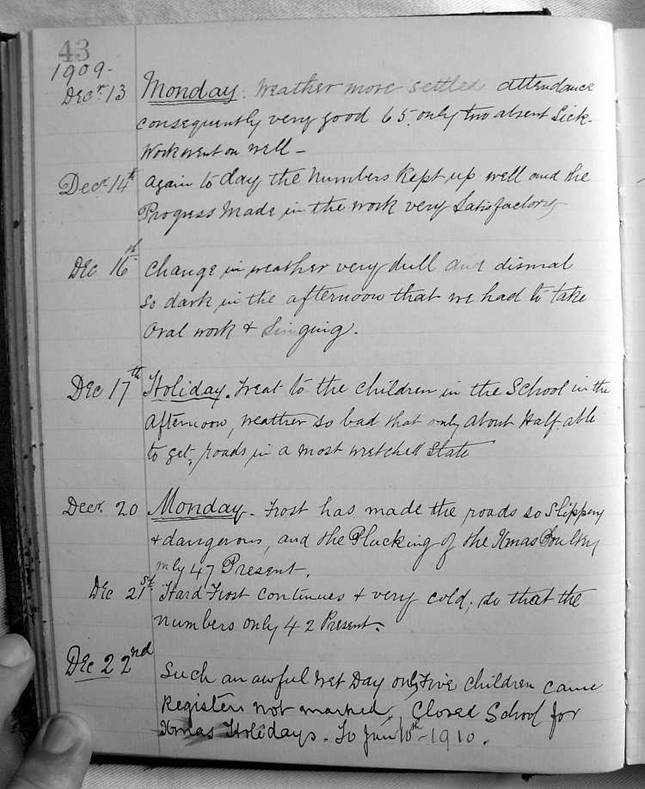 43
1909-
Decr. 13 Monday. Weather more settled attendance
consequently very good 65. only two absent Sick-
Work went on well -
Decr. 14th Again to day the numbers kept up well and the
Progress Made in the work very Satisfactory
Dec 16th Change in weather very dull and dismal
so dark in the afternoon that we had to take
Oral work & Singing.
Dec 17th Holiday. Treat to the children in the School in the
Afternoon, weather so bad that only about Half able
to get, roads in a most wretched State
Decr. 20 Monday - Frost has made the roads so Slippery
& dangerous, and the Plucking of the Xmas Poultry
only 47 Present.
Dec 21st Hard Frost continues & very cold, so that the
numbers only 42 Present.
Dec 22nd Such an awful wet Day only Five children came
Registers not marked, Closed School for
Xmas Holidays. To Jan 10th - 1910.